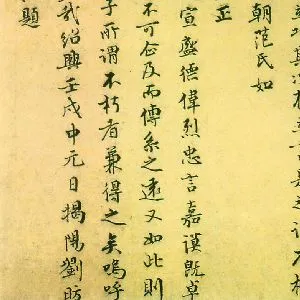 朝范氏如
正
宣盛德偉烈忠言嘉謨既卓
不可企及而傳系之遠又如此則
子所謂不朽者兼得之矣嗚呼
哉紹興壬戌中元日揭陽劉昉
題